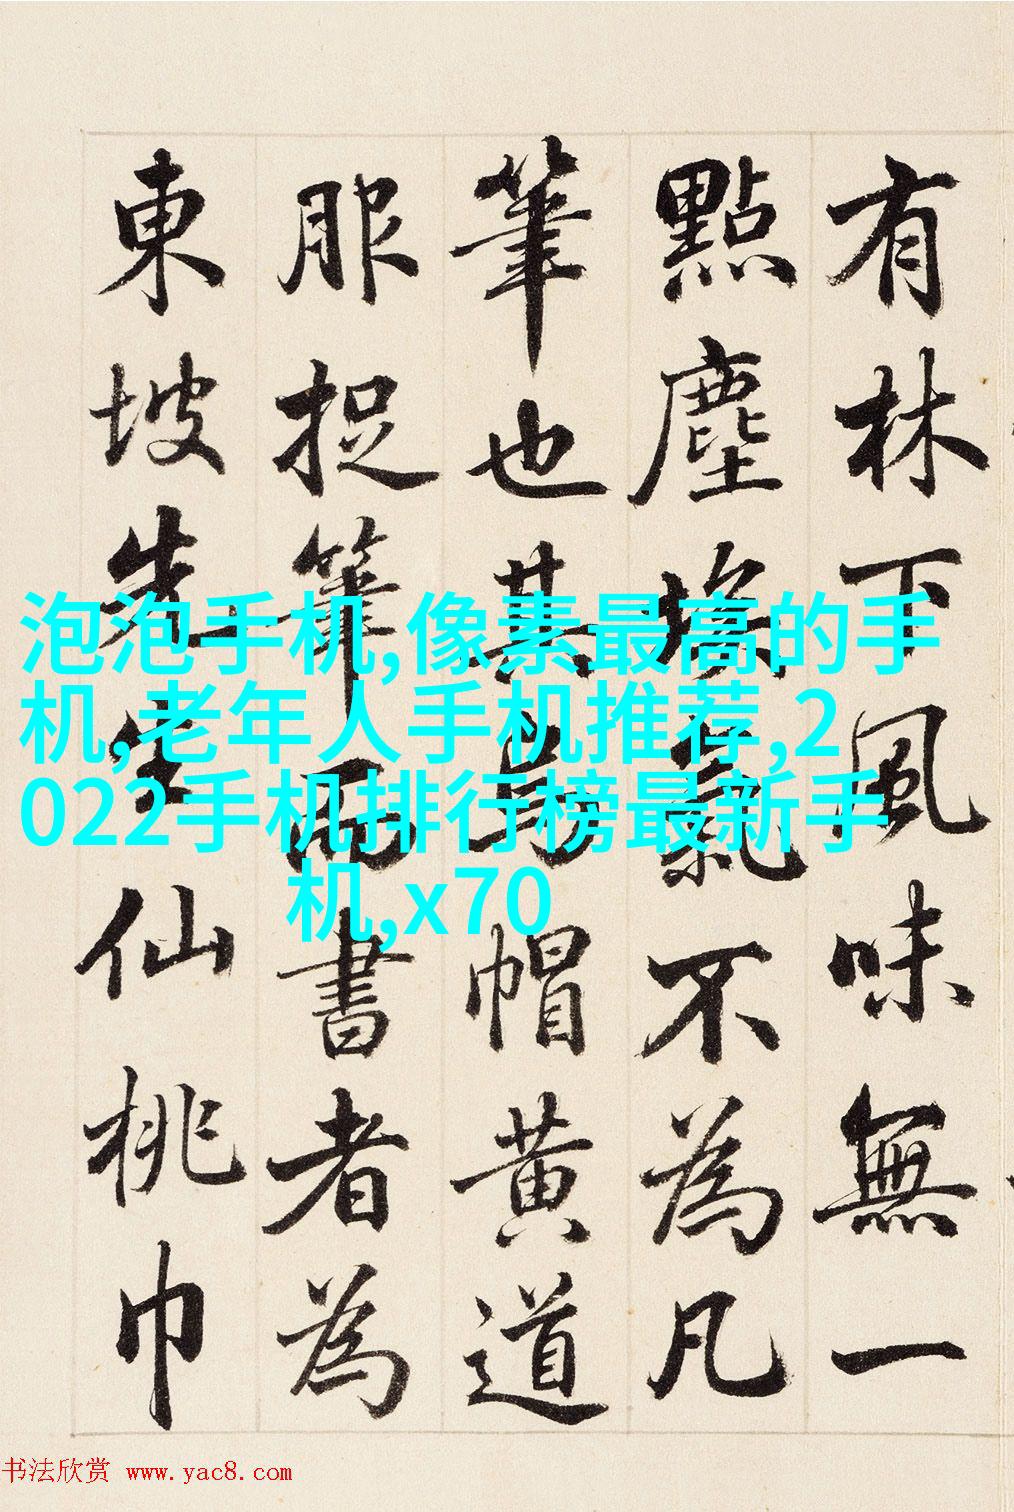 有林下風味無一
點塵埃氣不為凡
筆也其烏帽黃道
服捉筆而書者為
東坡先生仙桃巾
泡泡手机,像素最高的手
机,老年人手机推荐,2
022手机排行榜最新手
机,x70
书法欣赏 www.yac8.com